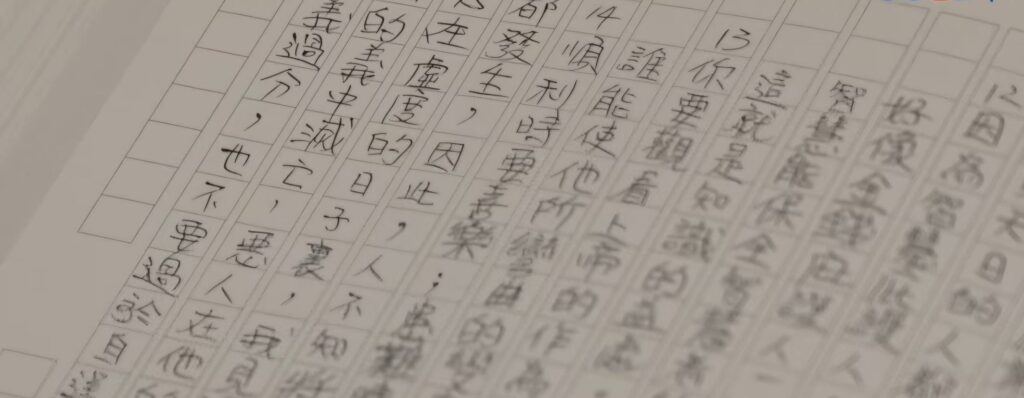 日的人
12因為智慧護
好像金錢的護人
智慧能保全智慧者
這就是知識的益處
13你要觀看上帝的作為
誰能使他所彎曲的變
14順利時要喜樂；患難
都發生，因此，人不知將
在虛度的日子裏，我見
的義中滅亡，惡人在他
義過分，也不要過於自逞